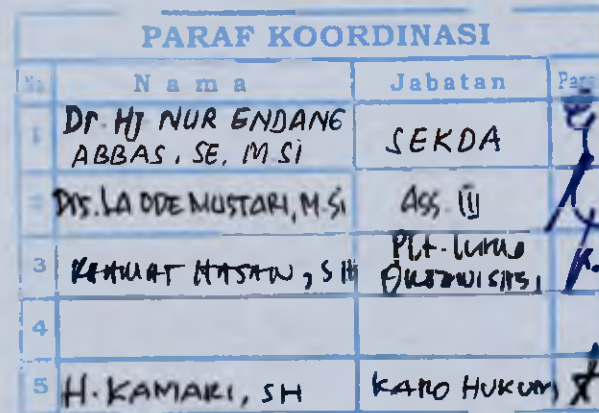 PARAF KOORDINASI
No N a m a Jabatan
1 Dr. Hj NUR ENDANG ABBAS, SE, M.Si SEKDA
DRS. LA ODE MUSTARI, M.Si ASS. III
3 RAHMAT HASAN, SH Plt.
4
5 H. KAMARI, SH KARO HUKUM